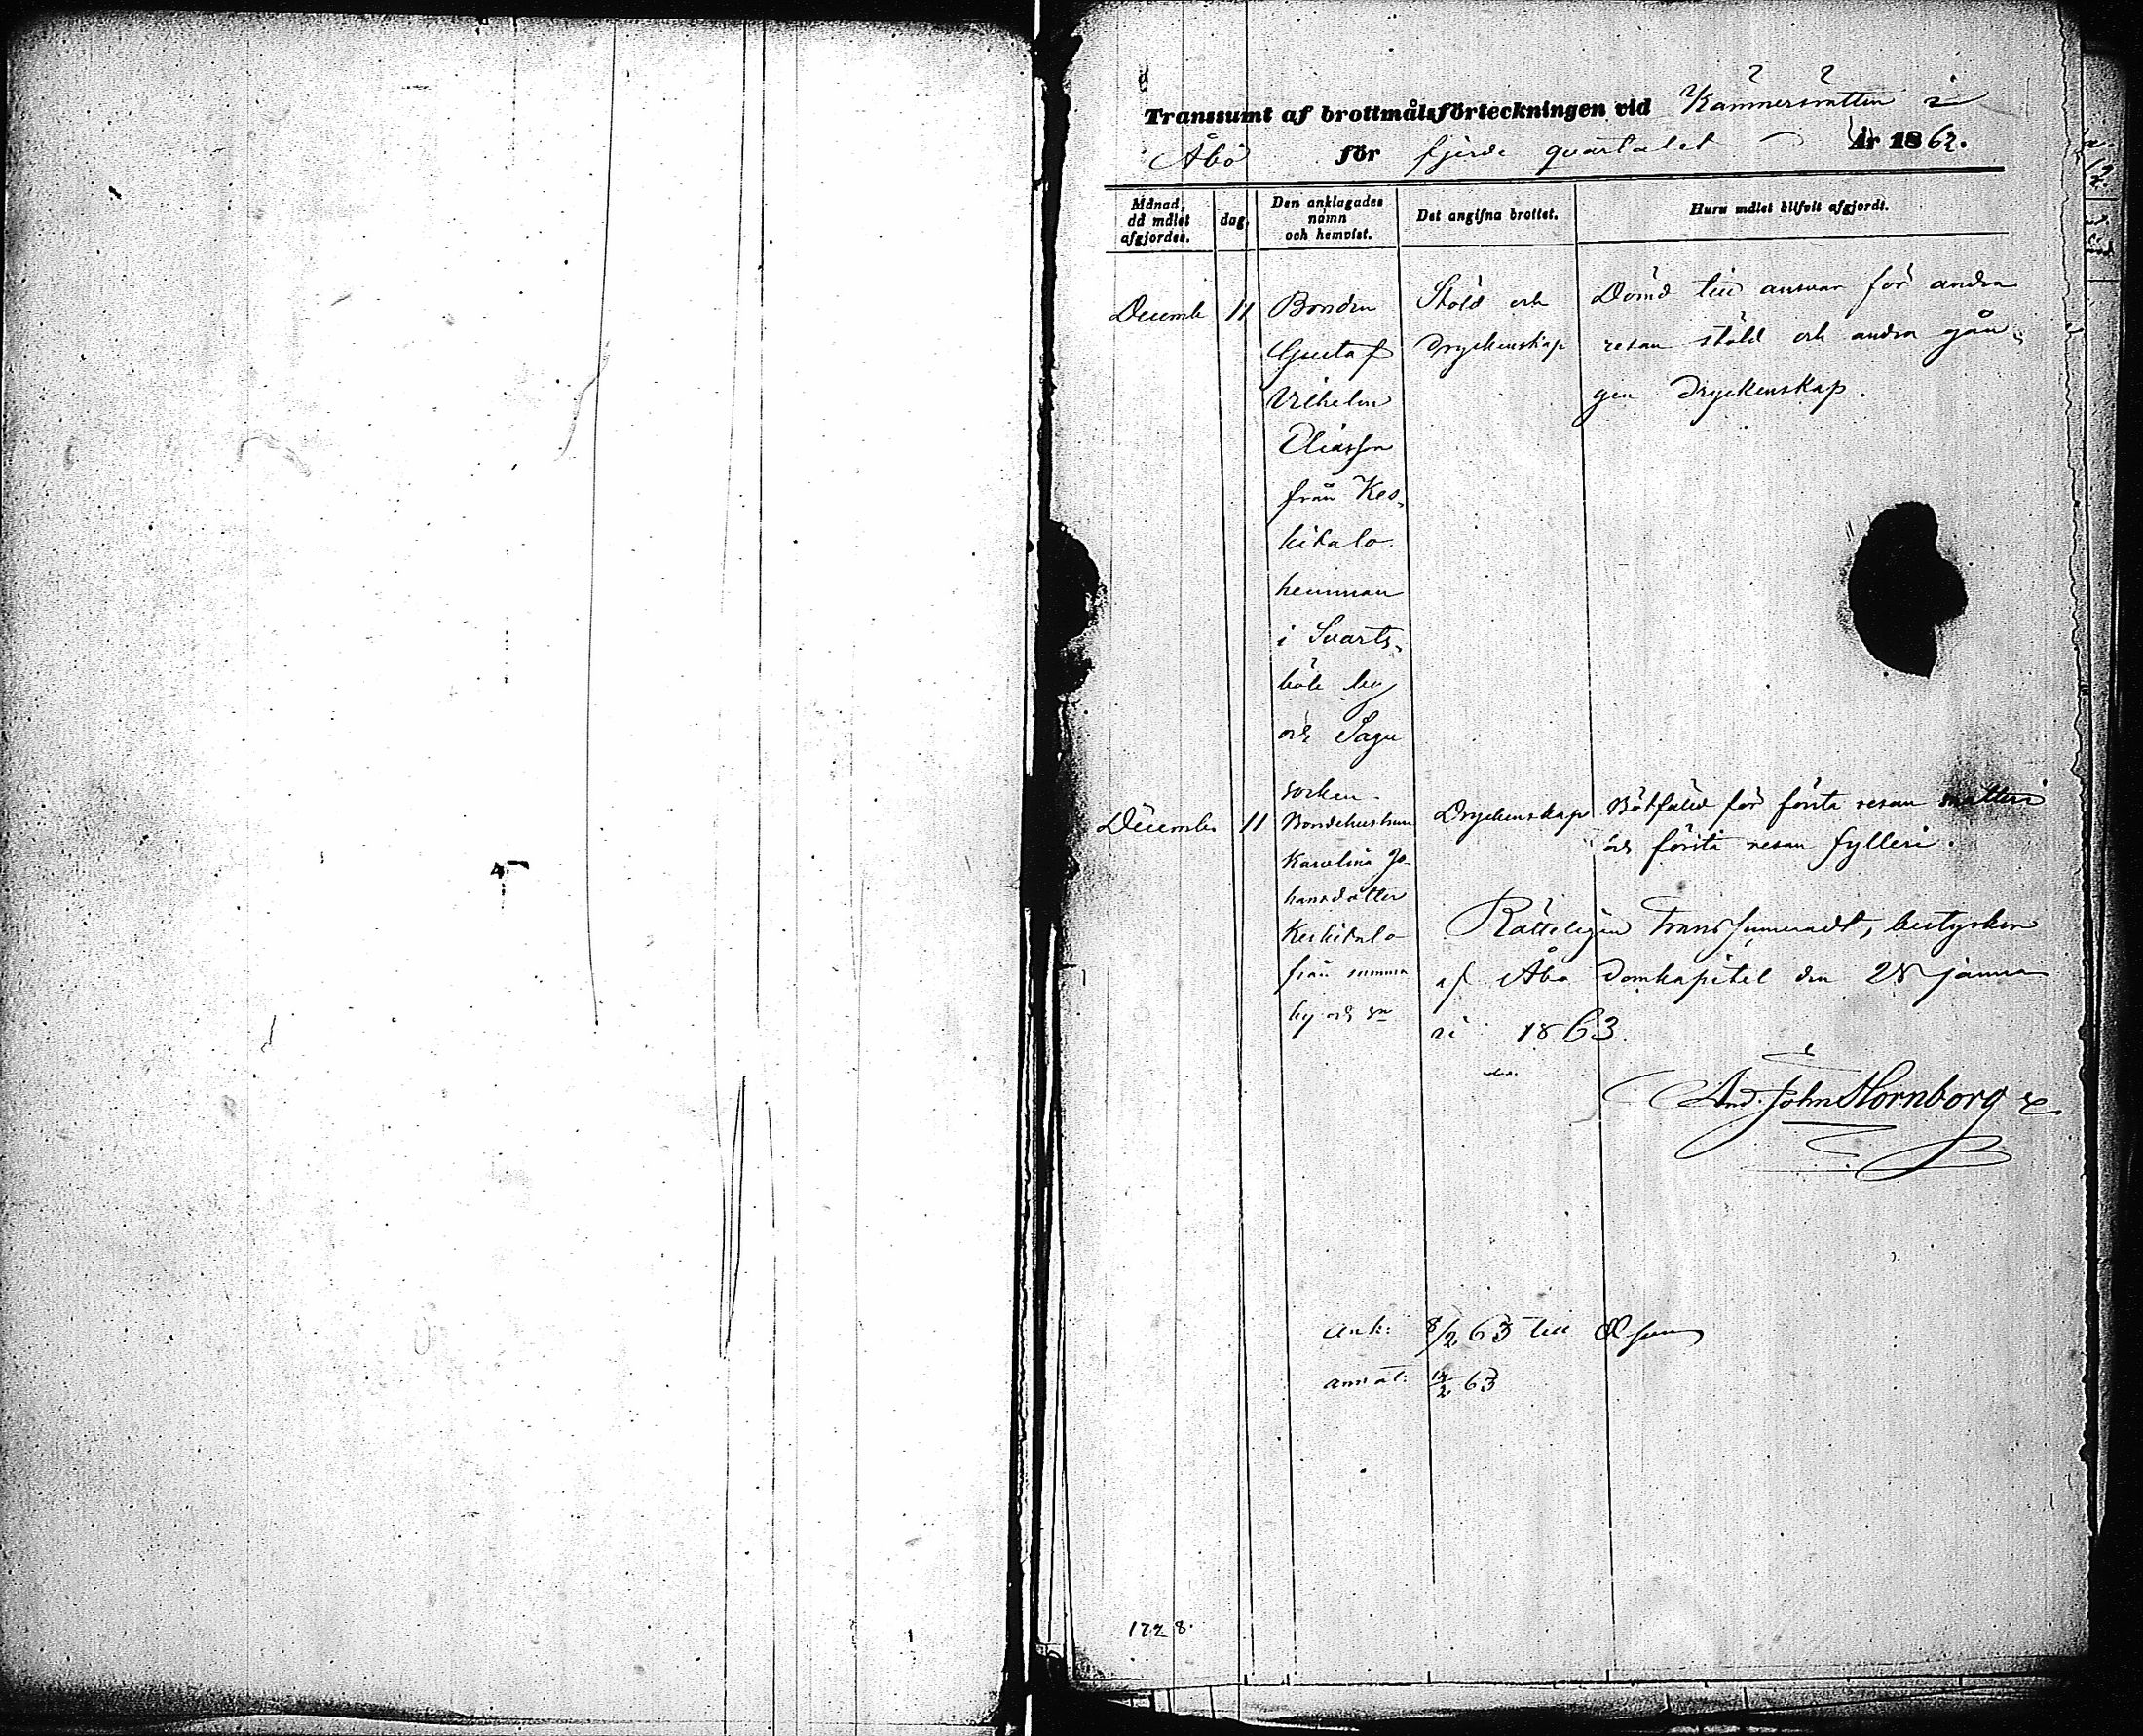 Transsumt af brottmålsförteckningen vid Kämnersrätten i
Åbo för fjerde quartalet År 1862.
Månad, då målet afgjordes.
dag.
Den anklagades namn och hemvist.
Det angifna brottet.
Huru målet blifvit afgjordt.
Decemb 11 Bonden Stöld och Dömd till ansvar för andra
Gustaf dryckenskap resan stöld och andra gån-
Vilhelm gen dryckenskap.
Eliasson
från Kes-
kitalo
hemman
i Svarts-
böle by
och Sagu
socken.
December 11 Bondehustrun Dryckenskap Bötfälld för första resan
Karolina Jo- och första resan fylleri.
hansdotter
Keskitalo
från samma
by och sn
Rätteligen transsumeradt, bestyrker
af Åbo Domkapitel den 28 janua
ri 1863.
And. John Hornborg
Ank: 8/2 63 till
annot: 63
1728.